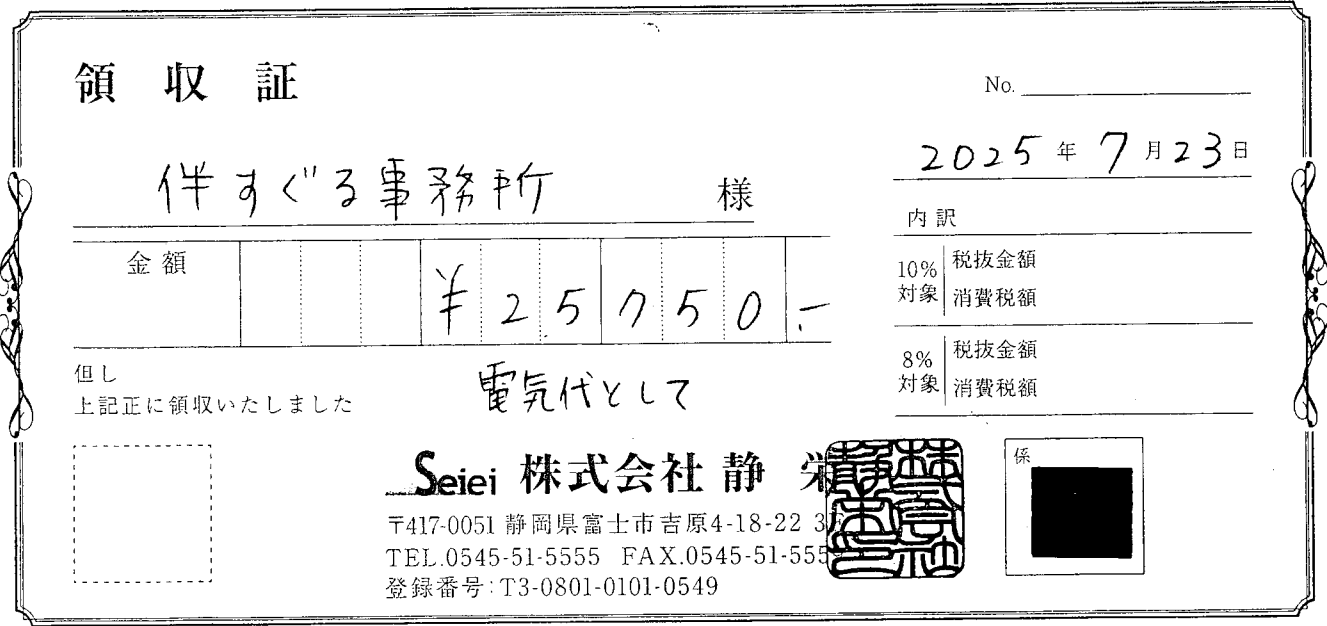 領収証
No.
2025年7月23日
伴すぐる事務所 様
金額 ¥25750.-
但し 電気代として
上記正に領収いたしました
内訳
10%対象 税抜金額
消費税額
8%対象 税抜金額
消費税額
Seiei 株式会社 静 栄
〒417-0051 静岡県富士市吉原4-18-22
TEL.0545-51-5555 FAX.0545-51-555
登録番号:T3-0801-0101-0549
係